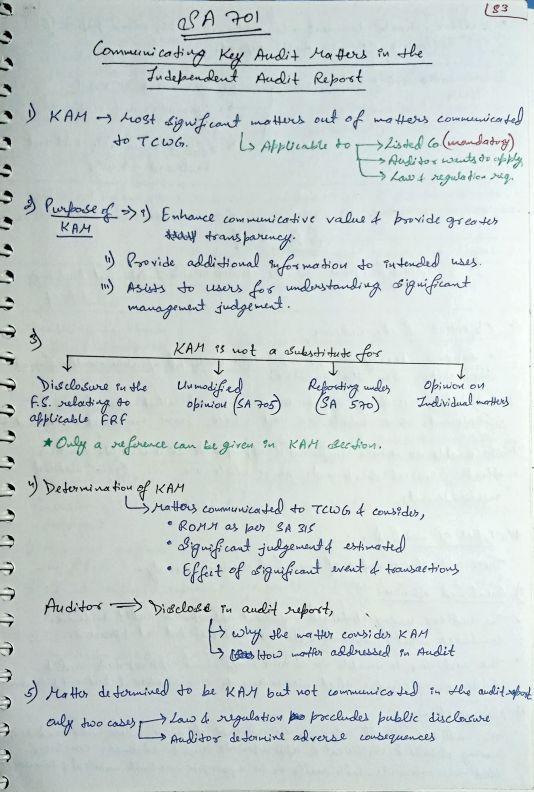 83
SA 701
Communicating Key Audit Matters in the
Independent Audit Report
1) KAM → Most significant matters out of matters communicated
to TCWG.
↳ Applicable to → Listed Co (mandatory)
→ Auditor wants to apply
→ Law & regulation req.
2) Purpose of KAM ⇒ i) Enhance communicative value & provide greater
transparency.
ii) Provide additional information to intended uses.
iii) Asists to users for understanding significant
management judgement.
3) KAM is not a substitute for
Disclosure in the
F.S. relating to
applicable FRF
Unmodified
opinion (SA 705)
Reporting under
(SA 570)
Opinion on
Individual matters
★ Only a reference can be given in KAM section.
4) Determination of KAM
↳ Matters communicated to TCWG & consider,
• ROMM as per SA 315
• Significant judgement & estimated
• Effect of significant event & transactions
Auditor ⇒ Disclose in audit report,
→ Why the matter consider KAM
→ How matter addressed in Audit
5) Matter determined to be KAM but not communicated in the audit report
only two cases → Law & regulation precludes public disclosure
→ Auditor determine adverse consequences